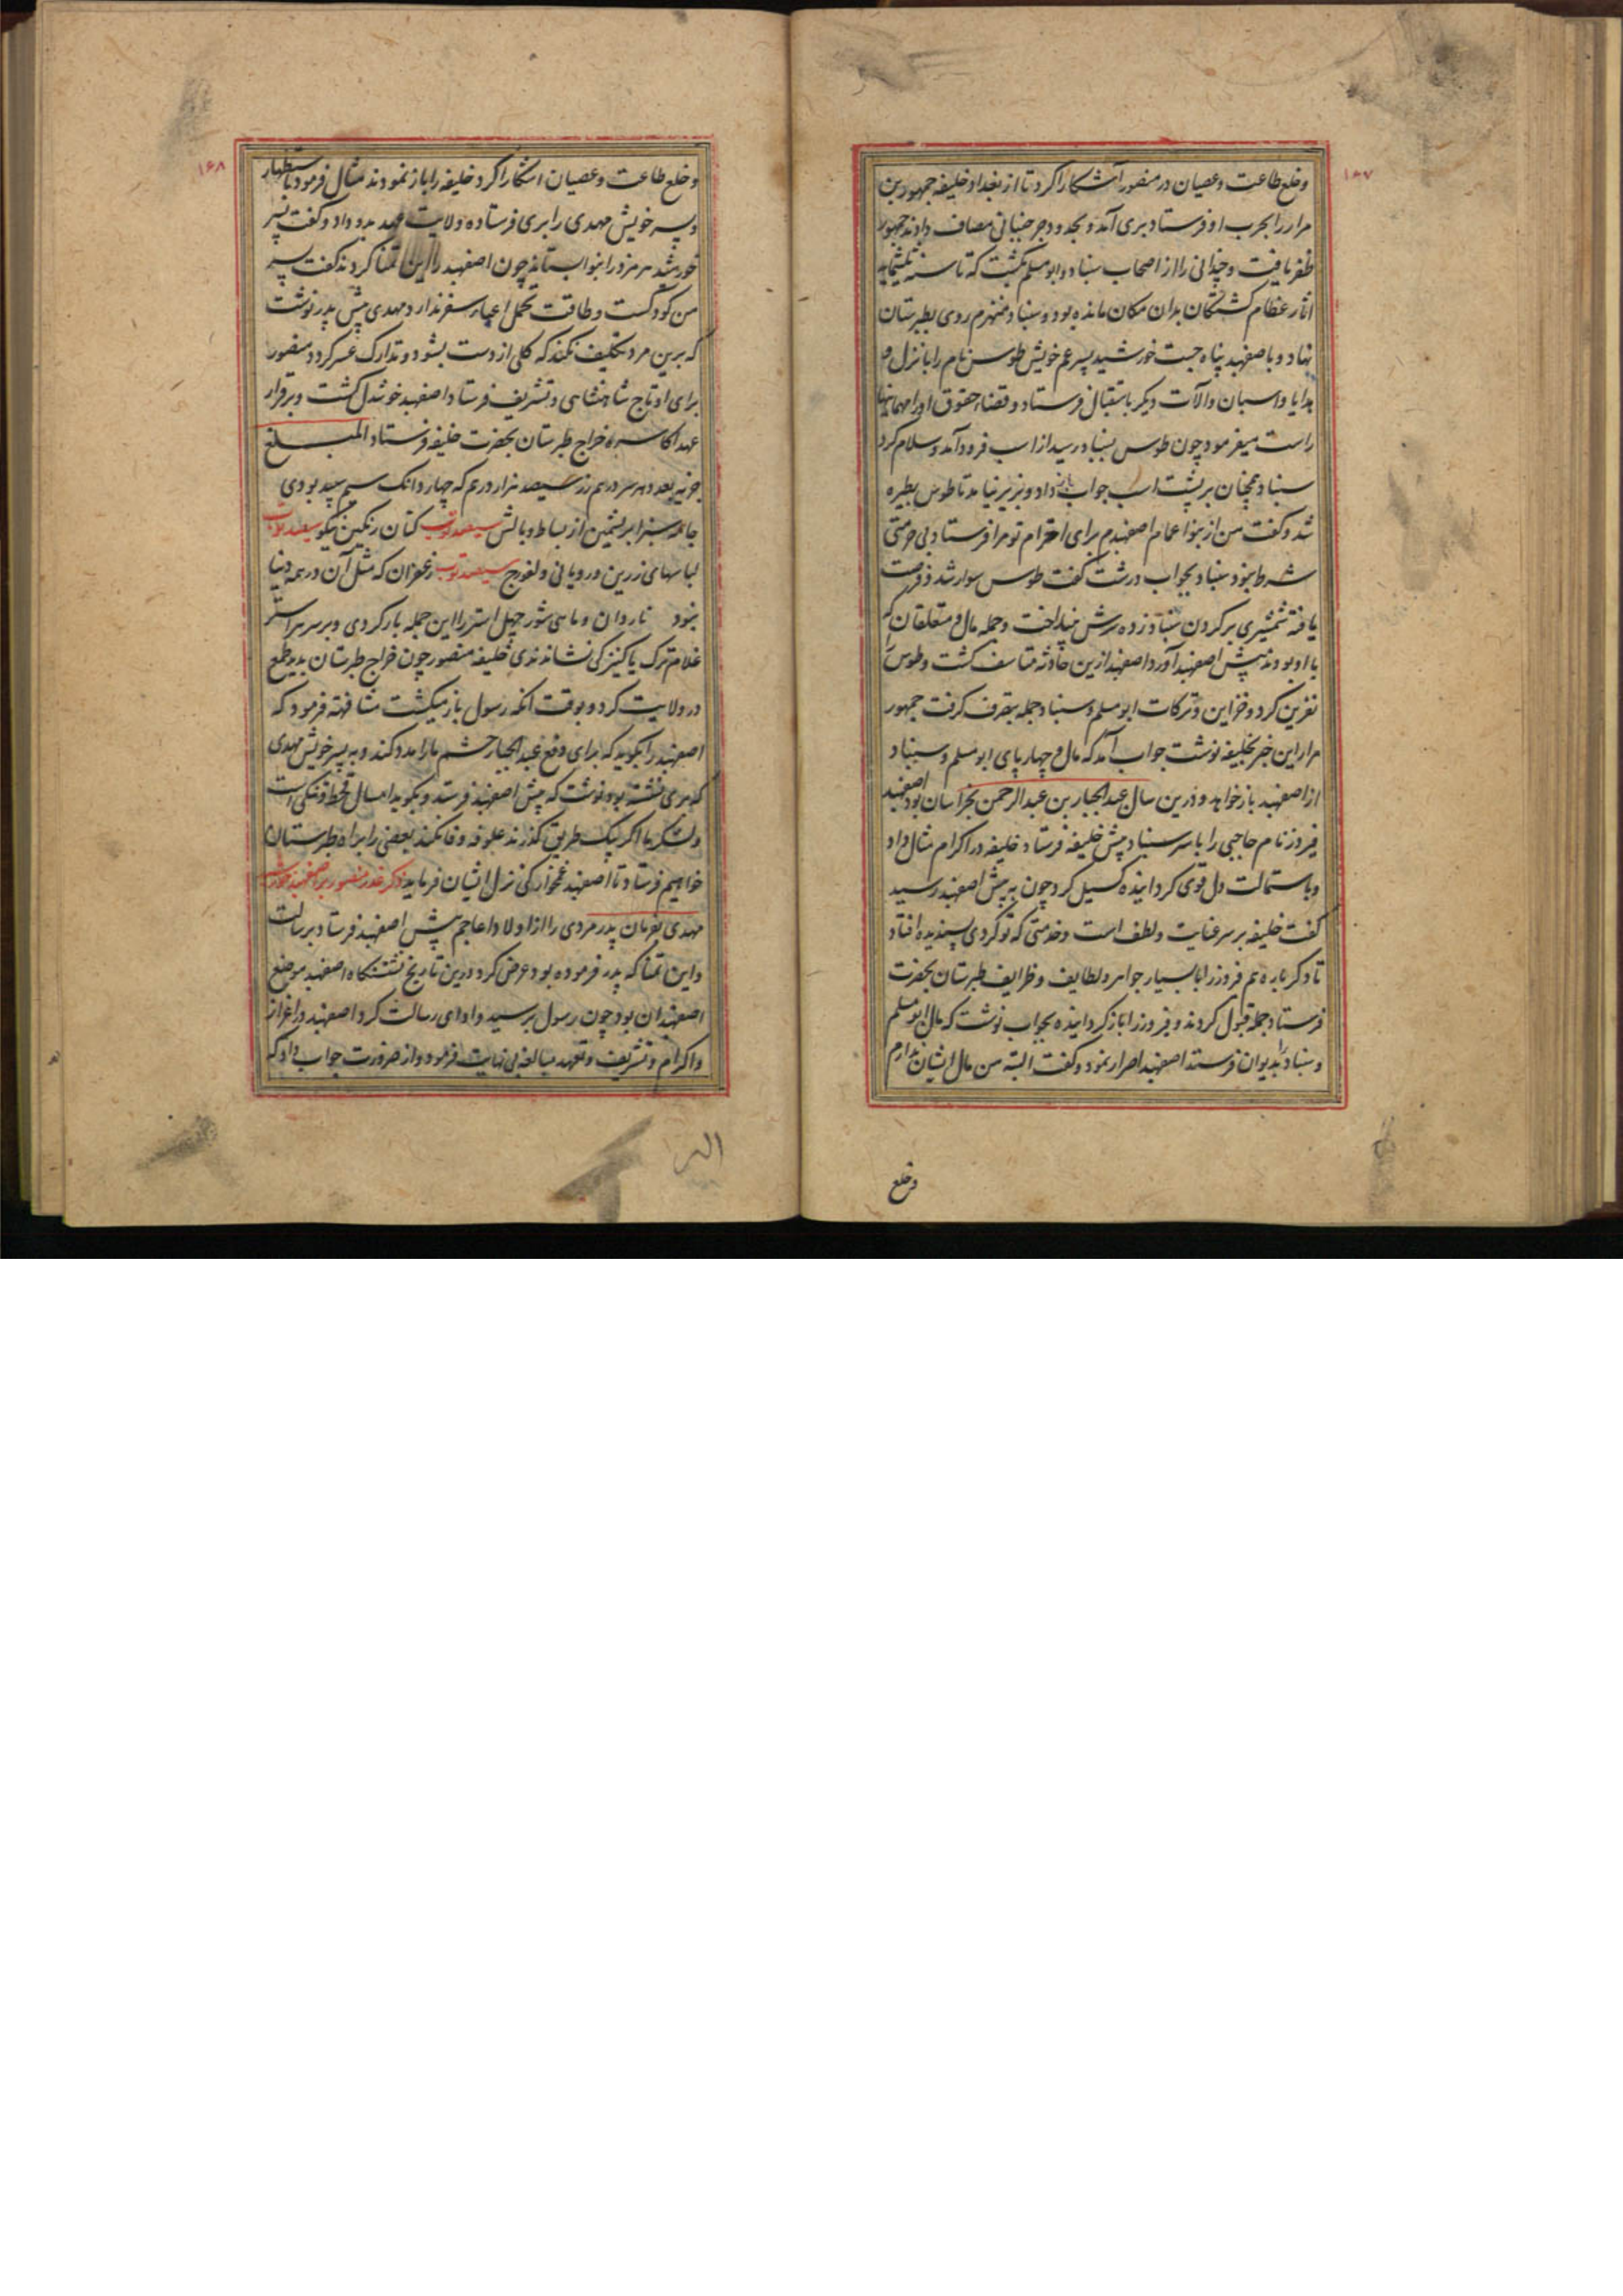 ۱۶۷
وخلع طاعت وعصیان در منصور آشکارا کرد تا از بغداد خلیفه جمهور بن
مرار را بحرب او فرستاد بری آمد و بحدود جرجنبانی مصاف دادند جمهور
ظفر یافت و چندانی را از اصحاب سنباد و ابو مسلم بکشت که تا سنه ثلثمایه
اثار عظام کشتکان بدان مکان مانده بود و سنباد منهزم روی بطبرستان
نهاد و با صفهبد پناه جست خورشید پسر عم خویش طوس نام را با نزل و
هدایا و اسبان و آلات دیکر باستقبال فرستاد و قضاء حقوق او را
راست میفرمود چون طوس بسنباد رسید از اسب فرود آمد و سلام کرد
سنباد همچنان بر پشت اسب جواب باز داد و بزیر نیامد تا طوس بطیره
شد و کفت من از بنو اعمام اصفهبدم برای احترام تو مرا فرستاد بی حرمتی
شرط نبود سنباد بجواب درشت کفت طوس سوار شد و فرصت
یافته شمشیری بر کردن سنباد زده سرش بینداخت و جمله مال و متعلقان که
با او بودند پیش اصفهبد آورد اصفهبد ازین حادثه متاسف کشت و طوس را
نفرین کرد و خزاین و ترکات ابو مسلم و سنباد جمله بتصرف کرفت جمهور
مرار این خبر بخلیفه نوشت جواب آمد که مال و چهارپای ابو مسلم و سنباد
از اصفهبد باز خواهد و درین سال عبد الجبار بن عبد الرحمن بخراسان بود اصفهبد
فیروز نام حاجبی را با سر سنباد پیش خلیفه فرستاد خلیفه در اکرام مثال داد
و باستمالت دل قوی کردانیده کسیل کرد چون به پیش اصفهبد رسید
کفت خلیفه بر سر عنایت و لطف است و خدمتی که تو کردی پسندیده افتاد
تا دکر باره هم فیروز را با بسیار جواهر و لطایف و ظرایف طبرستان بحضرت
فرستاد جمله قبول کردند و فیروز را باز کردانیده بجواب نوشت که مال ابو مسلم
و سنباد را بدیوان فرستد اصفهبد اصرار نمود و کفت البته من مال ایشان ندارم
و خلع
۱۶۸
و خلع طاعت و عصیان اشکارا کرد خلیفه را باز نمودند مثال فرمود تا استظهار
و پسر خویش مهدی را بری فرستاده ولایت عهد بدو داد و کفت پسر
خورشید هرمز را بنوا بستاند چون اصفهبد را این تمنا کردند کفت پسر
من کودکست و طاقت تحمل اعباء سفر ندارد مهدی پیش پدر نوشت
که برین مرد تکلیف نکند که کلی از دست بشود و تدارک عسر کردد منصور
برای او تاج شاهنشاهی و تشریف فرستاد اصفهبد خوشدل کشت و بر قرار
عهد اکاسره خراج طبرستان بحضرت خلیفه فرستاد المبـــلغ
سیصد هزار درهم که چهار دانک سیم سپید بودی
جامه سبز ابریشمین از بساط و بالش سیصد توب کتان رنکین نیکو سیصد توب
لباسهای زرین و رویانی و لفورج سیصد توب زعفران که مثل آن در همه دنیا
نبود ناردان و ماهی شور چهل استر را این جمله بار کردی و بر سر هر استر
غلام ترک یا کنیزکی نشاندندی خلیفه منصور چون خراج طبرستان بدید طمع
در ولایت کرد و بوقت آنکه رسول باز میکشت مشافهه فرمود که
اصفهبد را بکوید که برای دفع عبد الجبار حشم ما را مدد کند و به پسر خویش مهدی
که بری نشسته بود نوشت که پیش اصفهبد فرستد و بکوید امسال قحط و تنکی است
و لشکر ما اکر بیک طریق کذرند علوفه وفا نکند بعضی را براه طبرستان
خواهیم فرستاد تا اصفهبد غمخوارکی نزل ایشان فرماید ذکر غدر منصور بر اصفهبد خورشید
مهدی بفرمان پدر مردی را از اولاد اعاجم پیش اصفهبد فرستاد برسالت
و این تمنا که پدر فرموده بود عرض کرد و درین تاریخ نشستنکاه اصفهبد موضع
اصفهبدان بود چون رسول برسید و ادای رسالت کرد اصفهبد در اعزاز
و اکرام و تشریف و تعهد مبالغه بی نهایت فرمود و از ضرورت جواب داد که